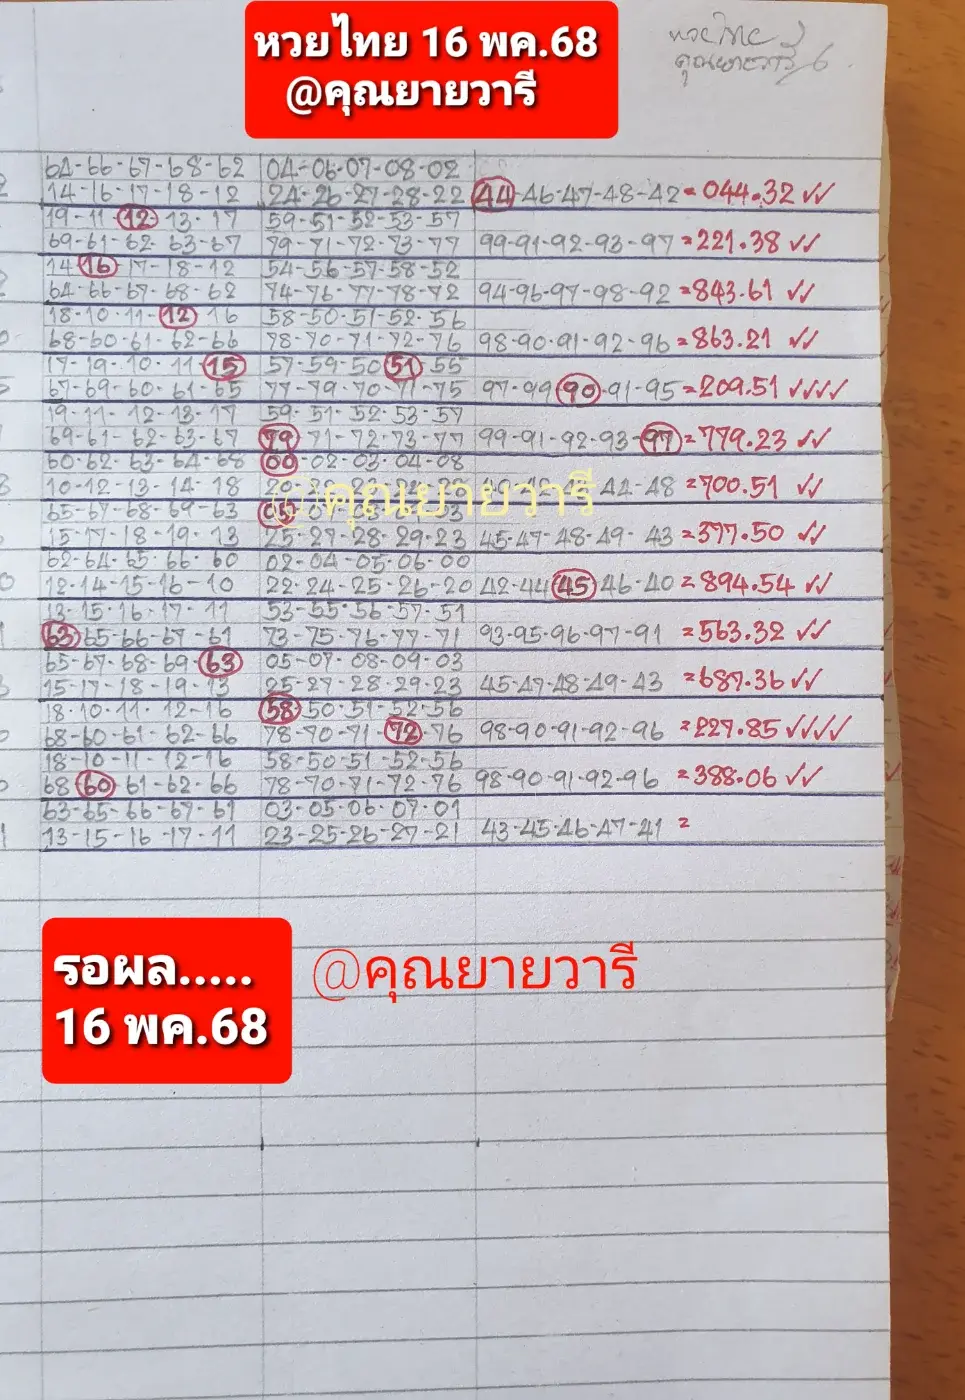 หวยไทย 16 พค.68
@คุณยายวารี
คุณยายวารี
64-66-67-68-62 04-06-07-08-02
14-16-17-18-12 24-26-27-28-22 44-46-47-48-42 = 044.32 ✓✓
19-11-12-13-17 59-51-52-53-57
69-61-62-63-67 79-71-72-73-77 99-91-92-93-97 = 221.38 ✓✓
14-16-17-18-12 54-56-57-58-52
64-66-67-68-62 74-76-77-78-72 94-96-97-98-92 = 843.61 ✓✓
18-10-11-12-16 58-50-51-52-56
68-60-61-62-66 78-70-71-72-76 98-90-91-92-96 = 863.21 ✓✓
17-19-10-11-15 57-59-50-51-55
67-69-60-61-65 77-79-70-71-75 97-99-90-91-95 = 209.51 ✓✓✓✓
19-11-12-13-17 59-51-52-53-57
69-61-62-63-67 79-71-72-73-77 99-91-92-93-97 = 779.23 ✓✓
60-62-63-64-68 00-02-03-04-08
10-12-13-14-18 44-48 = 700.51 ✓✓
@คุณยายวารี
65-67-68-69-63 03
15-17-18-19-13 25-27-28-29-23 45-47-48-49-43 = 377.50 ✓✓
62-64-65-66-60 02-04-05-06-00
12-14-15-16-10 22-24-25-26-20 42-44-45-46-40 = 894.54 ✓✓
13-15-16-17-11 53-55-56-57-51
63-65-66-67-61 73-75-76-77-71 93-95-96-97-91 = 563.32 ✓✓
65-67-68-69-63 05-07-08-09-03
15-17-18-19-13 25-27-28-29-23 45-47-48-49-43 = 687.36 ✓✓
18-10-11-12-16 58-50-51-52-56
68-60-61-62-66 78-70-71-72-76 98-90-91-92-96 = 227.85 ✓✓✓✓
18-10-11-12-16 58-50-51-52-56
68-60-61-62-66 78-70-71-72-76 98-90-91-92-96 = 388.06 ✓✓
63-65-66-67-61 03-05-06-07-01
13-15-16-17-11 23-25-26-27-21 43-45-46-47-41 =
รอผล.....
16 พค.68
@คุณยายวารี